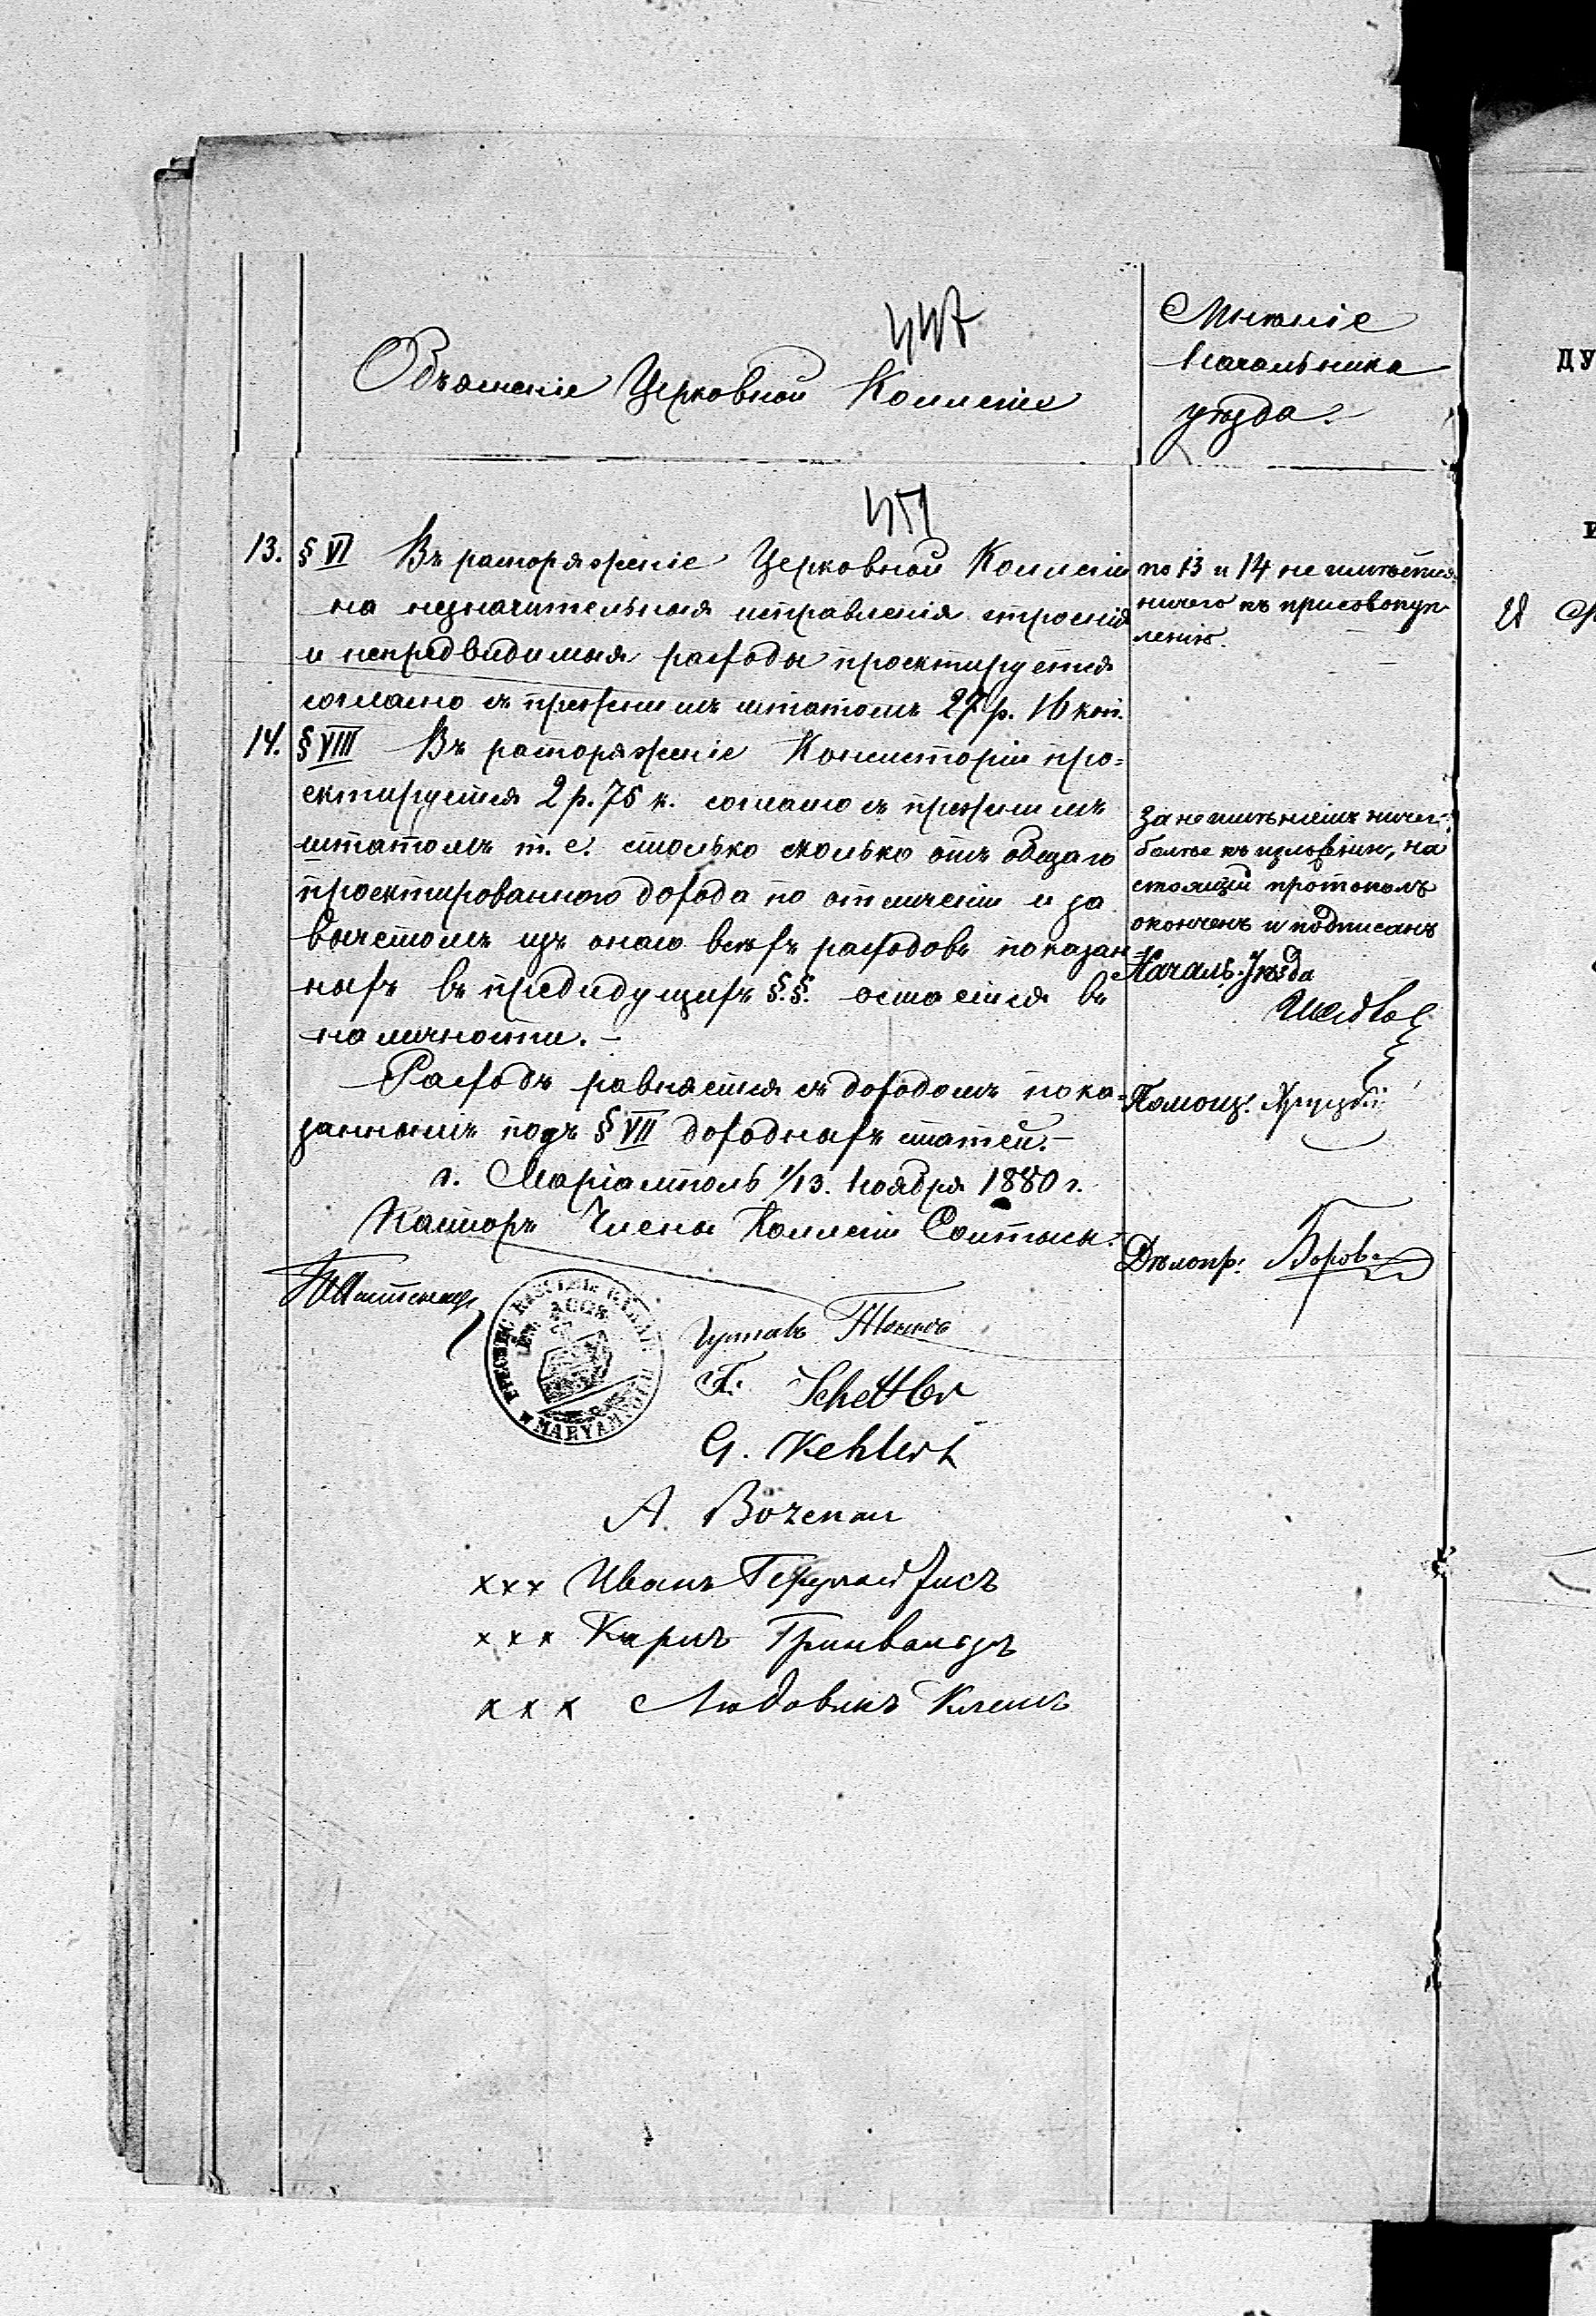 447
Объясненіе Церковной Коллегіи
Мнѣніе
Начальника
уѣзда.
451
13. § VI Въ распоряженіе Церковной Коллегіи
на незначительныя исправленія строенія
и непредвидимыя расходы проектируется
согласно съ прежнимъ штатомъ 27 р. 16 коп.
14. § VIII Въ распоряженіе Консисторіи про=
ектируется 2 р. 75 к. согласно съ прежнимъ
штатомъ т. е. столько сколько отъ общаго
проектированного дохода по отсиченіи и за
вычетомъ изъ онаго всѣхъ расходовъ показан=
ныхъ въ предидущихъ §.§. остается въ
наличности.-
Расходъ равняется съ доходомъ пока=
заннымъ подъ § VII доходныхъ статей.-
г. Маріамполь 1/13. Ноября 1880 г.
Пасторъ Члены Коллегіи
Густавъ
F. Schettler
G. Kehlert
A.
xxx Иванъ
xxx Карлъ Гринвальдъ
xxx Людовикъ Клемъ
MARYAMPOLU
по 13 и 14 не имѣется
ничего къ присовокуп
ленію.
За не имѣніемъ ничего
болѣе къ изложенію, на
стоящій протоколъ
оконченъ и подписанъ
Началь. Уѣзда
Помощ.
Дѣлопр:
ДУ